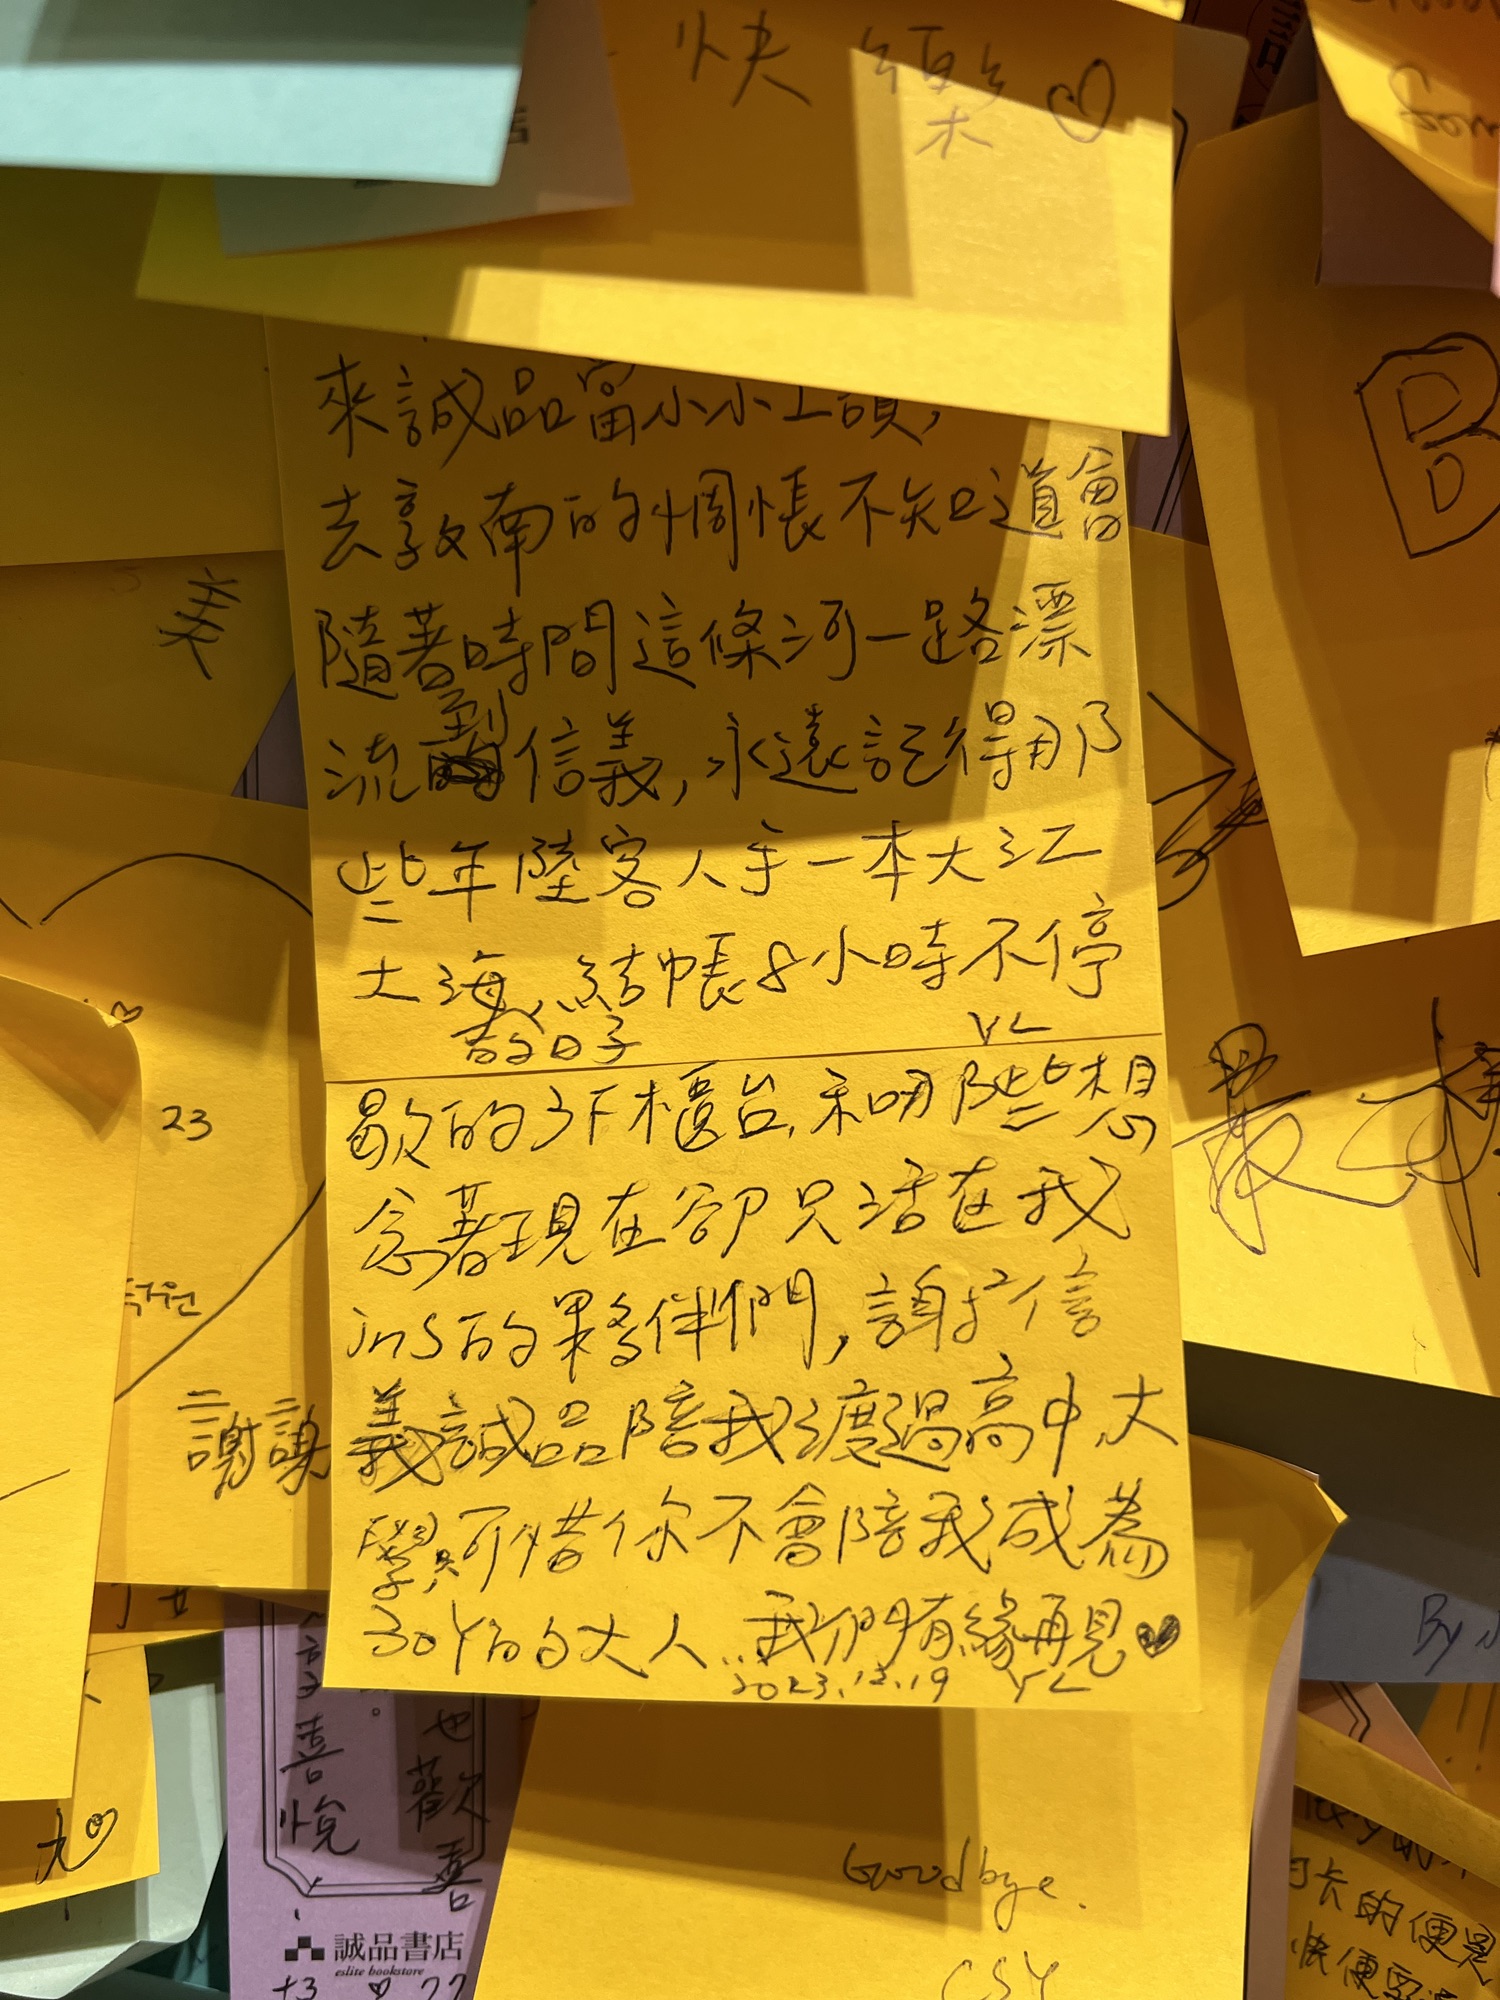 快樂♡
來誠品當小小工讀,
去敦南的惆悵不知道會
隨著時間這條河一路漂
流到信義,永遠記得那
些年陸客人手一本大江
大海、結帳8小時不停
的日子 YL
歇的3F櫃台,和那些想
念著現在卻只活在我
ins的夥伴們,謝謝信
義誠品陪我渡過高中、大
學,可惜你不會陪我成為
30Y的大人、我們有緣再見♥
2023.12.19 YL
B
美
23
謝謝
喜悅
也歡喜
誠品書店
eslite bookstore
Goodbye.
CSY
By
卡的便是